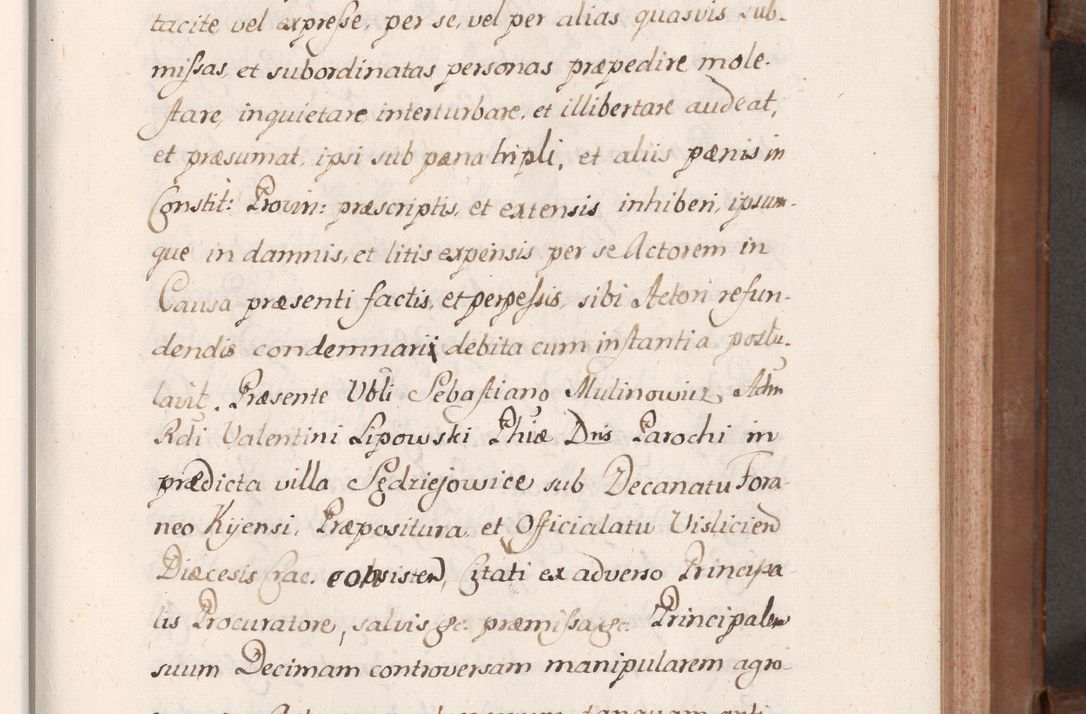 tacite vel expresse, per se, vel per alias quasvis sub-
missas, et subordinatas personas præpedire mole-
stare, inquietare interturbare, et illibertare audeat,
et præsumat, ipsi sub pæna tripli, et aliis pænis in
Constit: Provin: præscriptis, et extensis inhiberi, ipsum-
que in damnis, et litis expensis per se Actorem in
Causa præsenti factis, et perpessis, sibi Actori refun-
dendis condemnarii debita cum instantia postu-
lavit. Præsente Vbli Sebastiano Mulinowicz, Adm
Rdi Valentini Lipowski Phiæ Dris Parochi in
prædicta villa Sędziejowice sub Decanatu Fora-
neo Kijensi, Præpositura, et Officialatu Vislicien
Diæcesis Crac. consisten, Citati ex adverso Principa-
lis Procuratore, salvis &c. præmissa &c. Principalem
suum Decimam controversam manipularem agro-
tanquam anti-